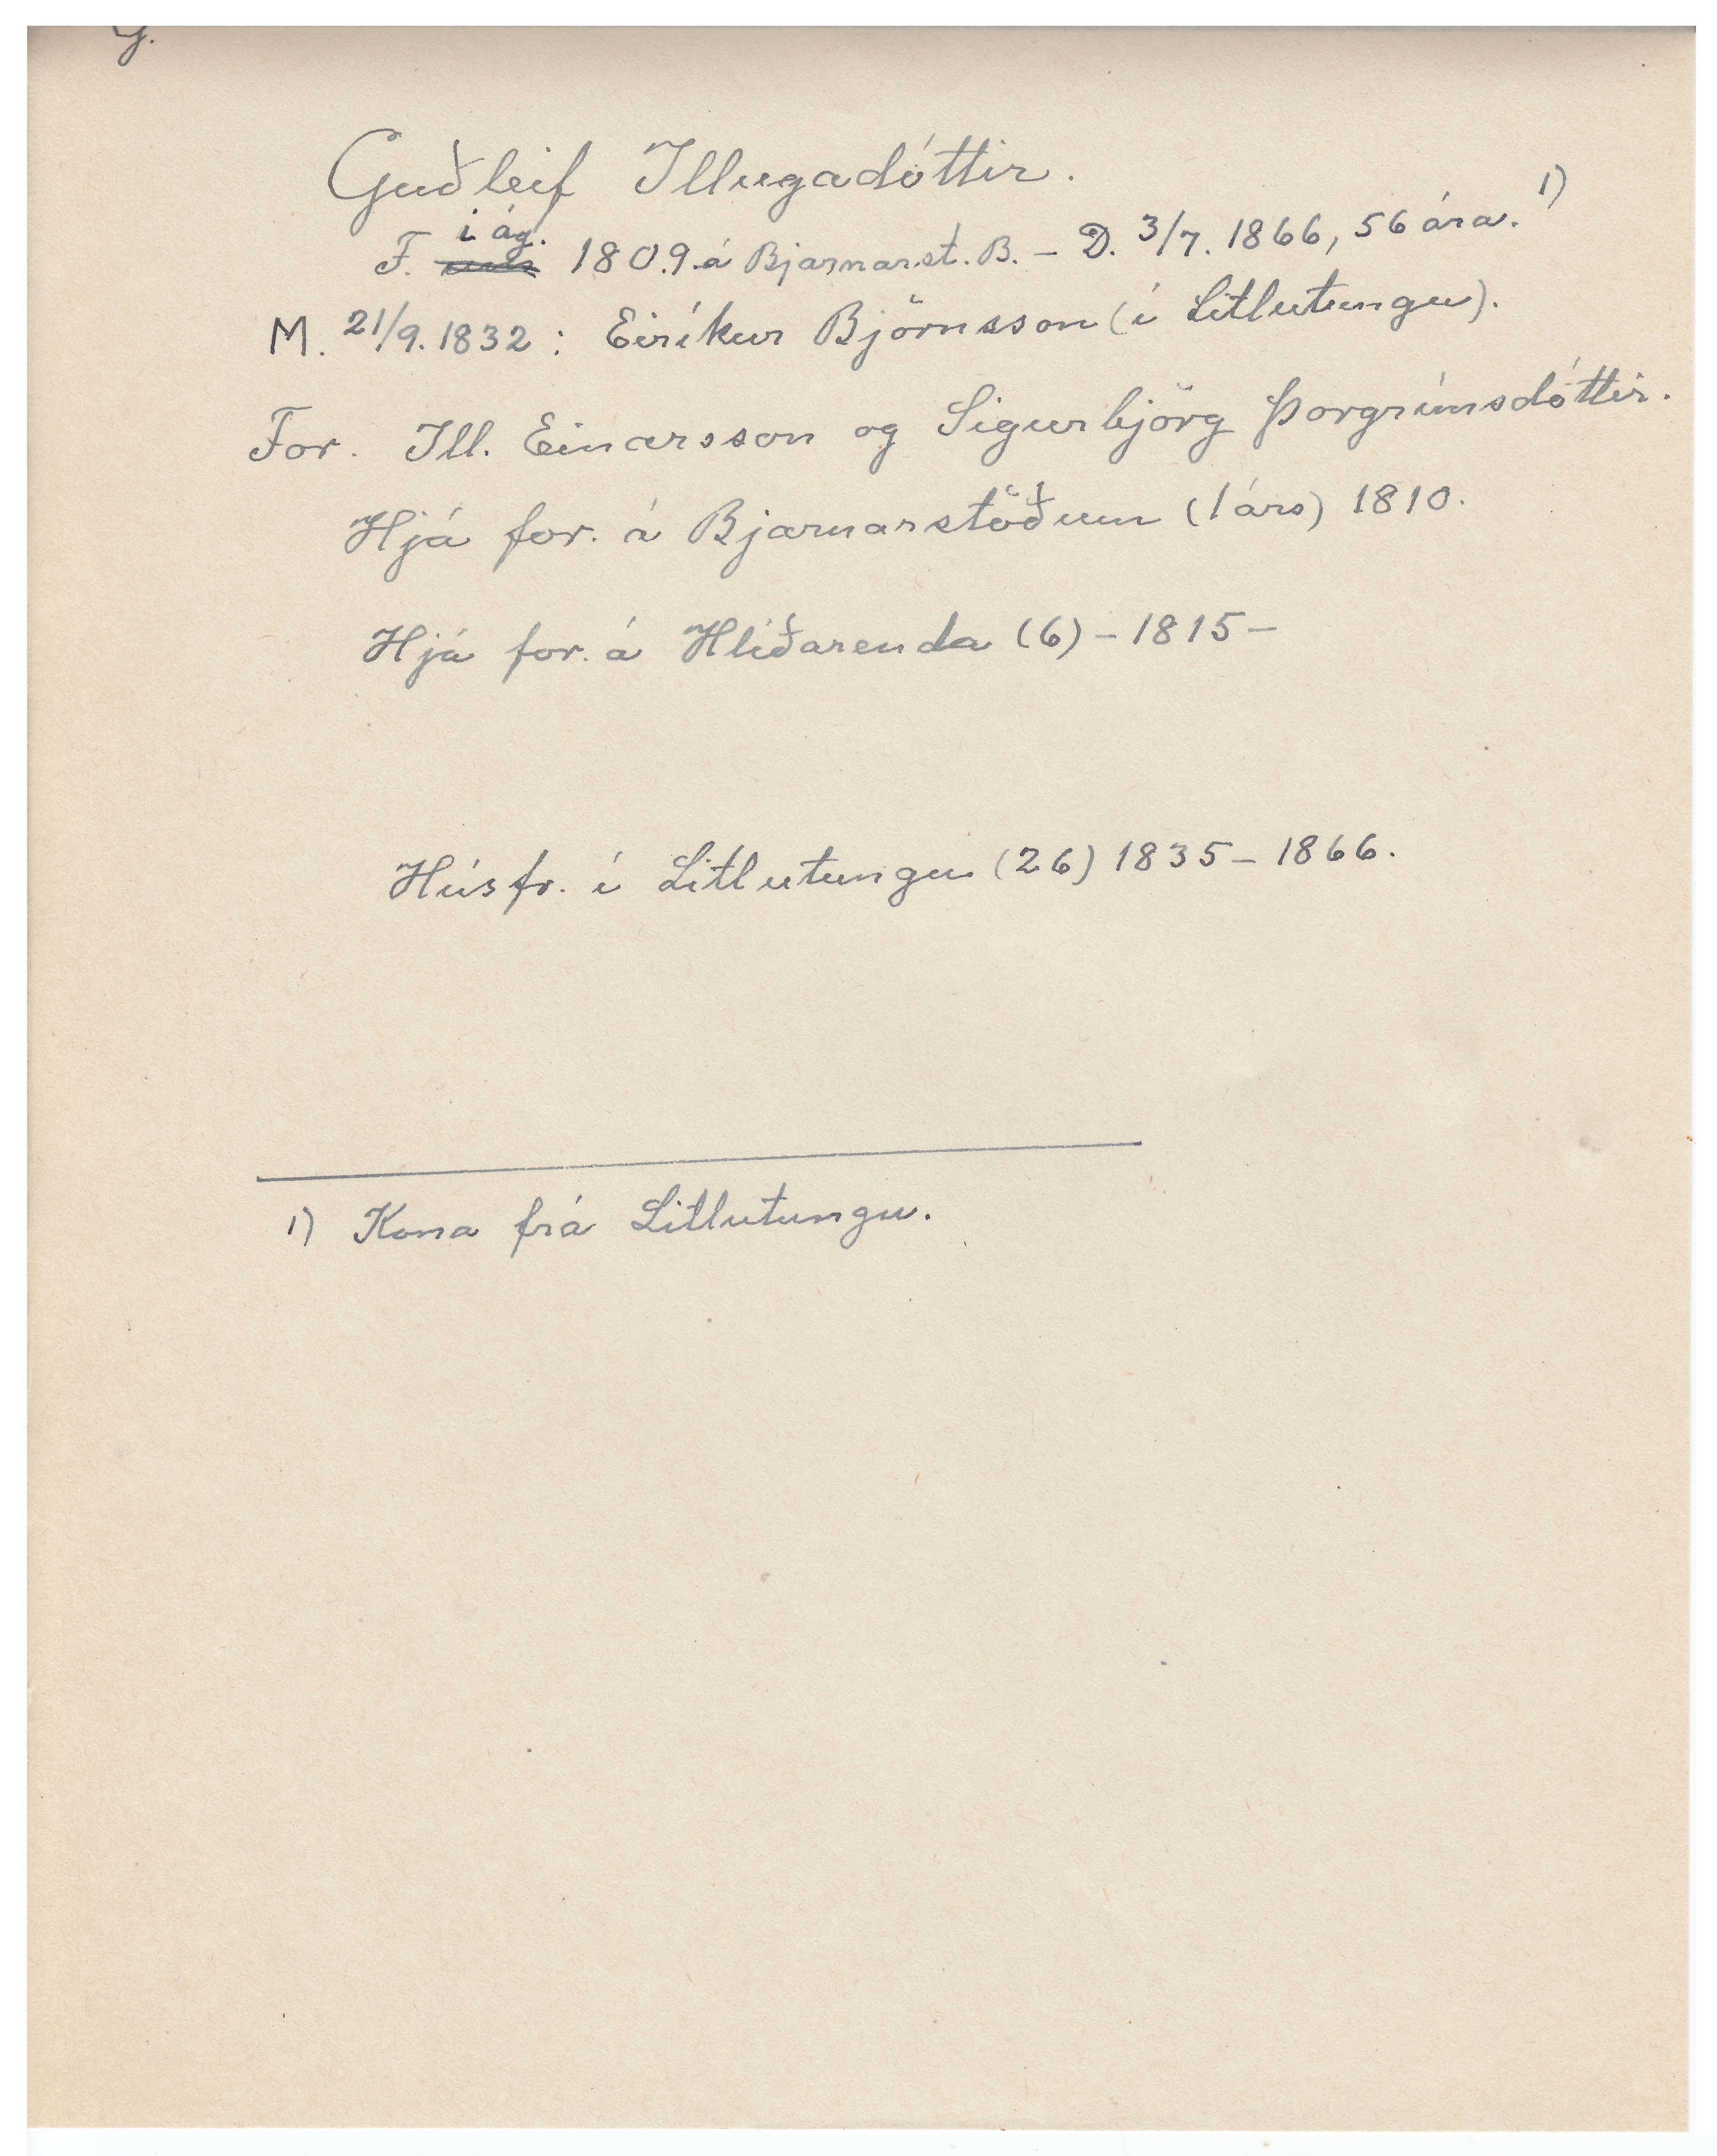 Guðleif Illugadóttir.
F. í ág. 1809 á Bjarnarst. B. – D. 3/7. 1866, 56 ára. 1)
M. 21/9. 1832: Eiríkur Björnsson (í Litlutungu).
For. Ill. Einarsson og Sigurbjörg Þorgrímsdóttir.
Hjá for. á Bjarnarstöðum (1 árs) 1810.
Hjá for. á Hlíðarenda (6) – 1815 –
Húsfr. í Litlutungu (26) 1835 – 1866.
1) Kona frá Litlutungu.